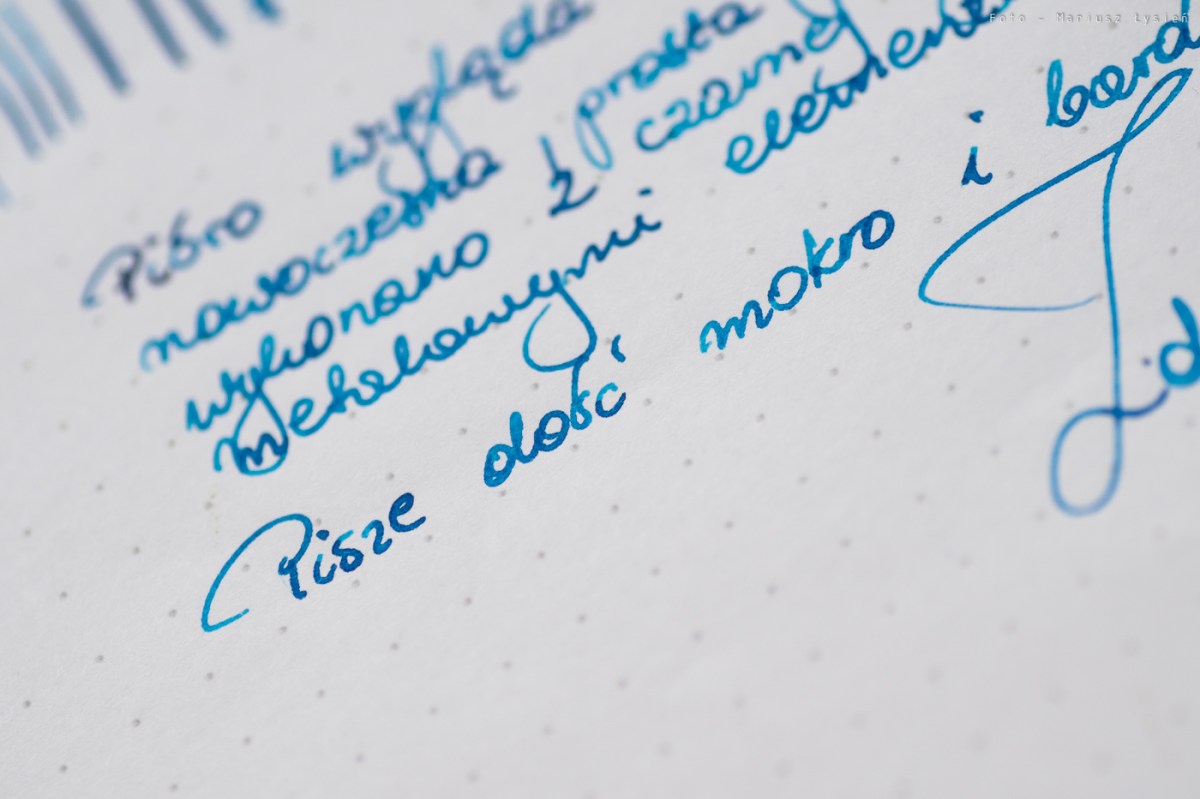 Foto - Mariusz Łysień
Pióro wygląda
nowoczesna i prosta
wykonano z czarnej
metalowymi element
Pisze dość mokro i bard